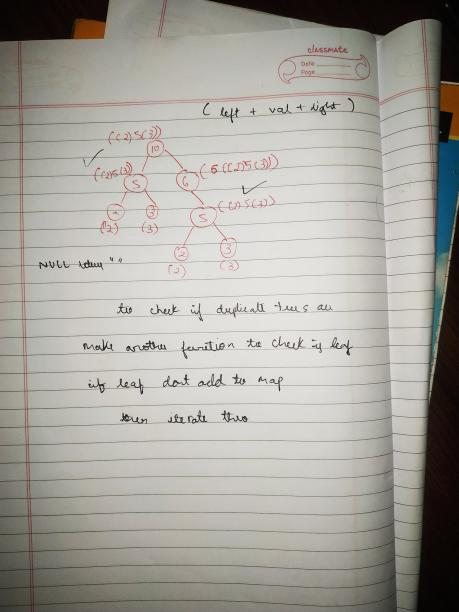 classmate
Date
Page
( left + val + right )
((2)5(3))
10
((2)5(3))
5
6
(6((2)5(3)))
2
3
5
((2)5(3))
(2)
(3)
2
3
NULL return ""
(2)
(3)
to check if duplicate trees are
make another function to check if leaf
if leaf dont add to map
then iterate thro